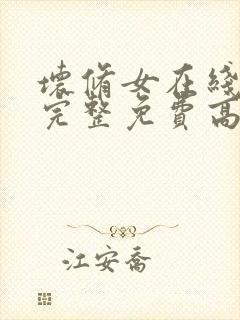 壞脩女在綫
完整免費高
江安喬